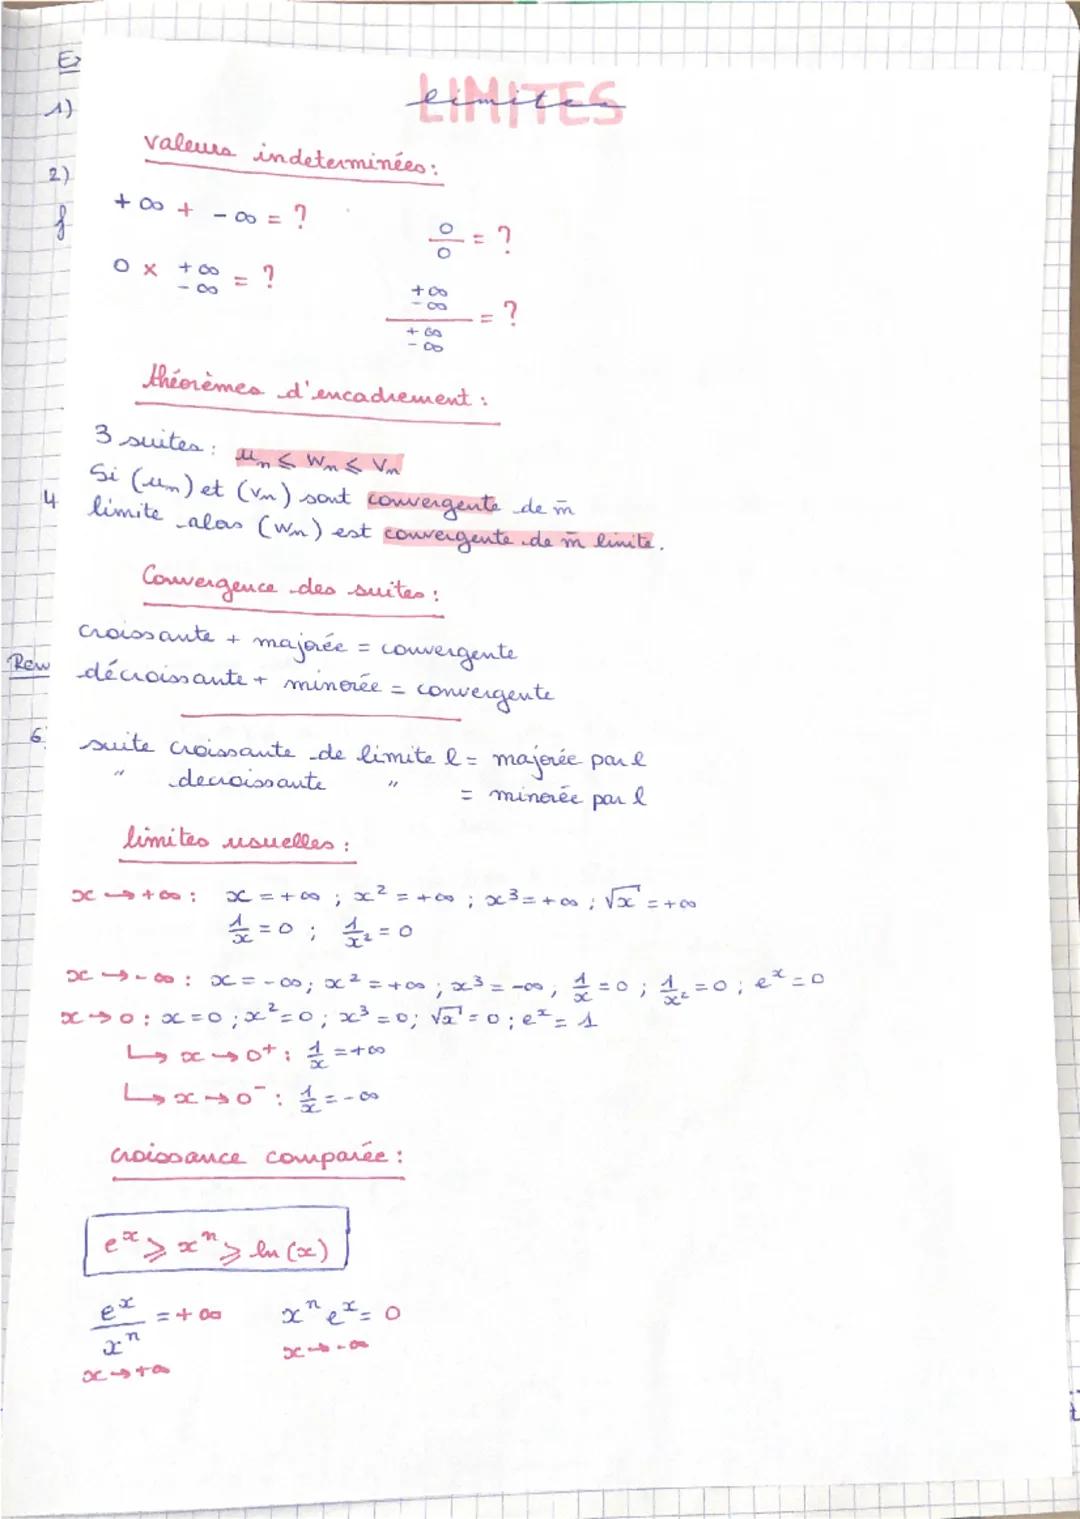 Ex
1)
2)
f
4
Rem
6
LIMITES
limites
valeurs indeterminées :
+∞ + -∞ = ?
0/0 = ?
0 × +∞/-∞ = ?
+∞ -∞ / +∞ -∞ = ?
théorèmes d'encadrement :
3 suites : uₙ ⩽ wₙ ⩽ vₙ
Si (uₙ) et (vₙ) sont convergente de m̄
limite alors (wₙ) est convergente de m̄ limite.
Convergence des suites :
croissante + majorée = convergente
décroissante + minorée = convergente
suite croissante de limite l = majorée par l
" decroissante " = minorée par l
limites usuelles :
x → +∞ : x = +∞ ; x² = +∞ ; x³ = +∞ ; √x = +∞
1/x = 0 ; 1/x² = 0
x → -∞ : x = -∞ ; x² = +∞ ; x³ = -∞ ; 1/x = 0 ; 1/x² = 0 ; eˣ = 0
x → 0 : x = 0 ; x² = 0 ; x³ = 0 ; √x = 0 ; eˣ = 1
↳ x → 0⁺ : 1/x = +∞
↳ x → 0⁻ : 1/x = -∞
croissance comparée :
eˣ ⩾ xⁿ ⩾ ln(x)
eˣ/xⁿ = +∞ xⁿeˣ = 0
x → +∞ x → -∞